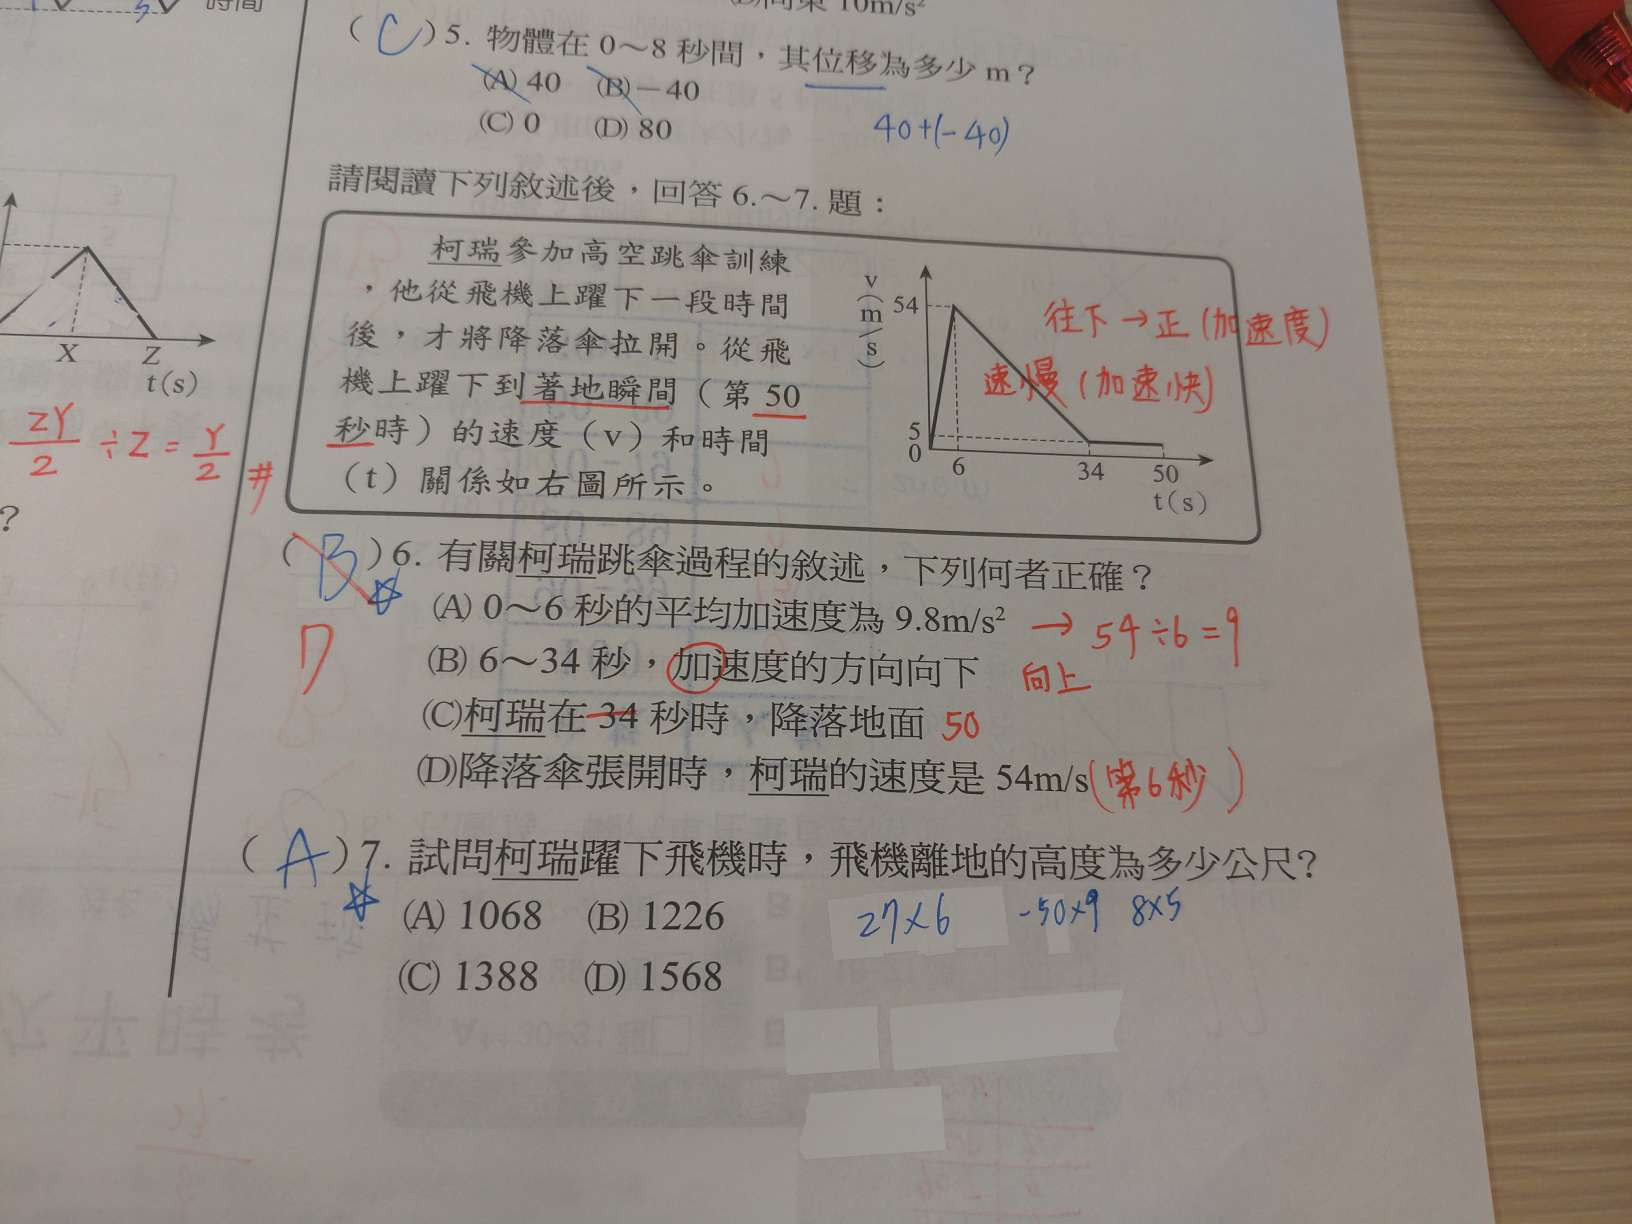 時間
10m/s²
( C ) 5. 物體在 0～8 秒間，其位移為多少 m？
(A) 40 (B) －40
(C) 0 (D) 80
40+(-40)
請閱讀下列敘述後，回答 6.～7. 題：
柯瑞參加高空跳傘訓練
，他從飛機上躍下一段時間
後，才將降落傘拉開。從飛
機上躍下到著地瞬間（第 50
秒時）的速度（v）和時間
（t）關係如右圖所示。
v(m/s)
54
5
0
6 34 50
t(s)
往下→正(加速度)
速慢(加速快)
X Z
t(s)
ZY/2 ÷Z = Y/2 #
？
( B ) 6. 有關柯瑞跳傘過程的敘述，下列何者正確？
D
(A) 0～6 秒的平均加速度為 9.8m/s² → 54÷6=9
(B) 6～34 秒，加速度的方向向下 向上
(C)柯瑞在 34 秒時，降落地面 50
(D)降落傘張開時，柯瑞的速度是 54m/s(第6秒)
( A ) 7. 試問柯瑞躍下飛機時，飛機離地的高度為多少公尺?
(A) 1068 (B) 1226
27×6 -50×9 8×5
(C) 1388 (D) 1568